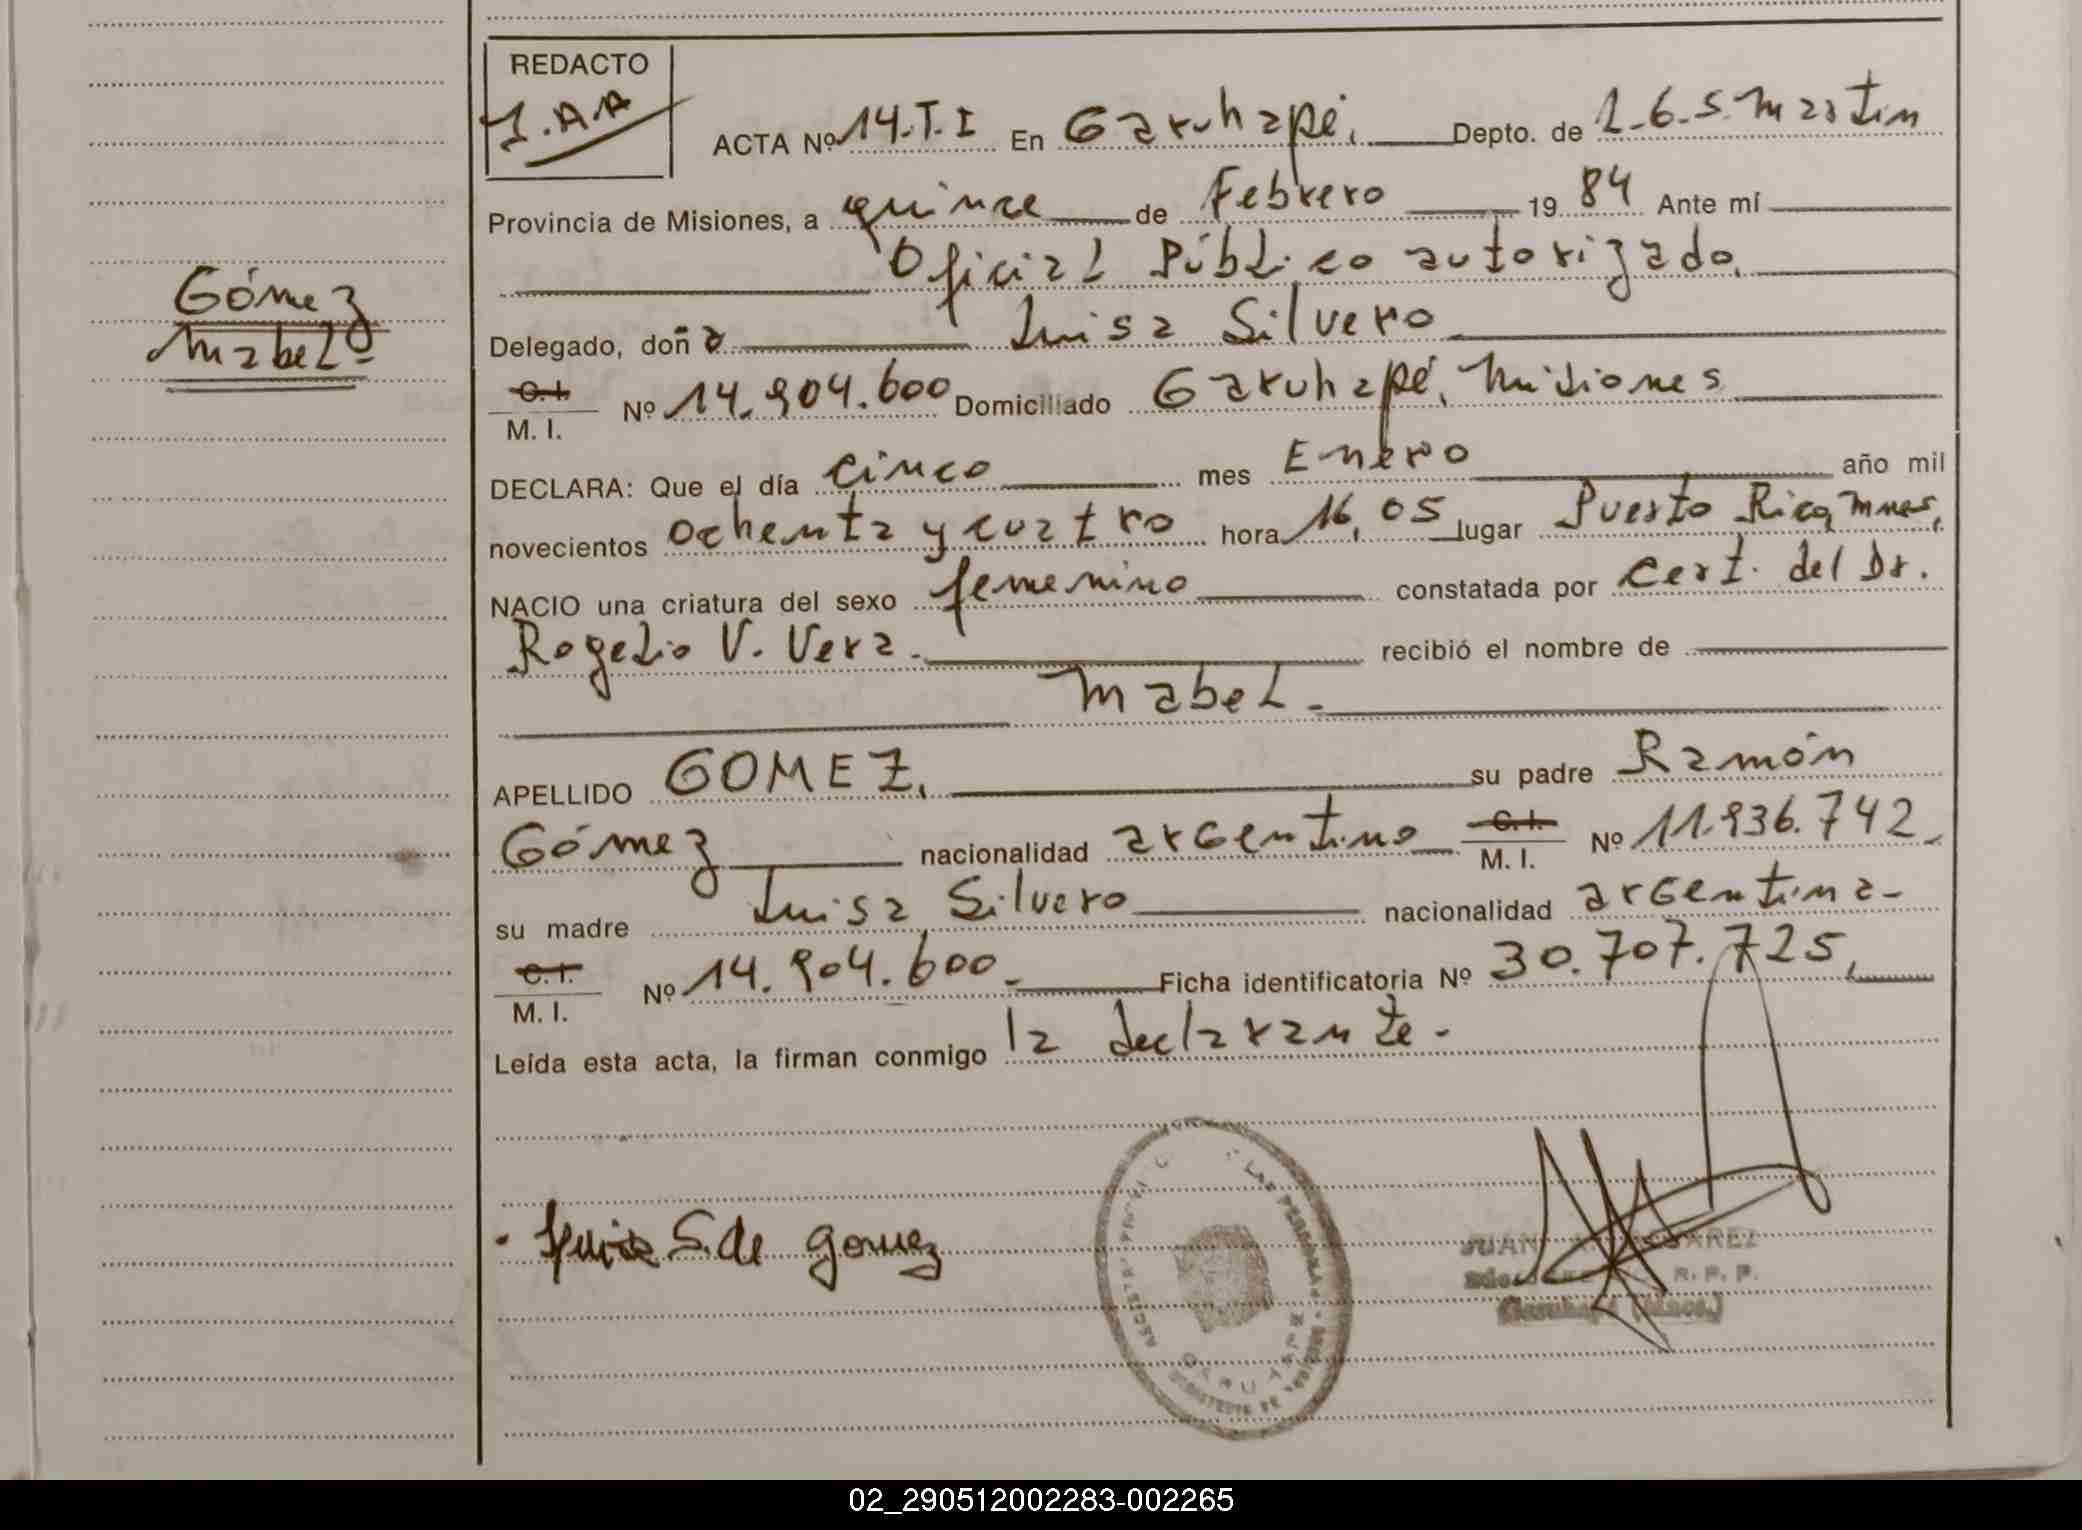 REDACTO
J.A.A
ACTA Nº 14.T.I En Garuhapé, Depto. de L.G.S. Martin
Provincia de Misiones, a quince de Febrero 19 84 Ante mí
Oficial Público autorizado,
Gómez
Mabel
Delegado, doña Luisa Silvero
C.I. M. I. Nº 14.904.600 Domiciliado Garuhapé, Misiones
DECLARA: Que el día cinco mes Enero año mil
novecientos ochenta y cuatro hora 16,05 lugar Puerto Rico, Mnes,
NACIO una criatura del sexo femenino constatada por cert. del Dr.
Rogelio V. Vera. recibió el nombre de
Mabel.
APELLIDO GOMEZ, su padre Ramón
Gómez nacionalidad argentino C.I. M. I. Nº 11.936.742
su madre Luisa Silvero nacionalidad argentina
C.I. M. I. Nº 14.904.600. Ficha identificatoria Nº 30.707.725,
Leída esta acta, la firman conmigo la declarante.
Luisa S. de Gomez
JUAN
R. P. P.
Garuhapé (Mnes.)
02_290512002283-002265